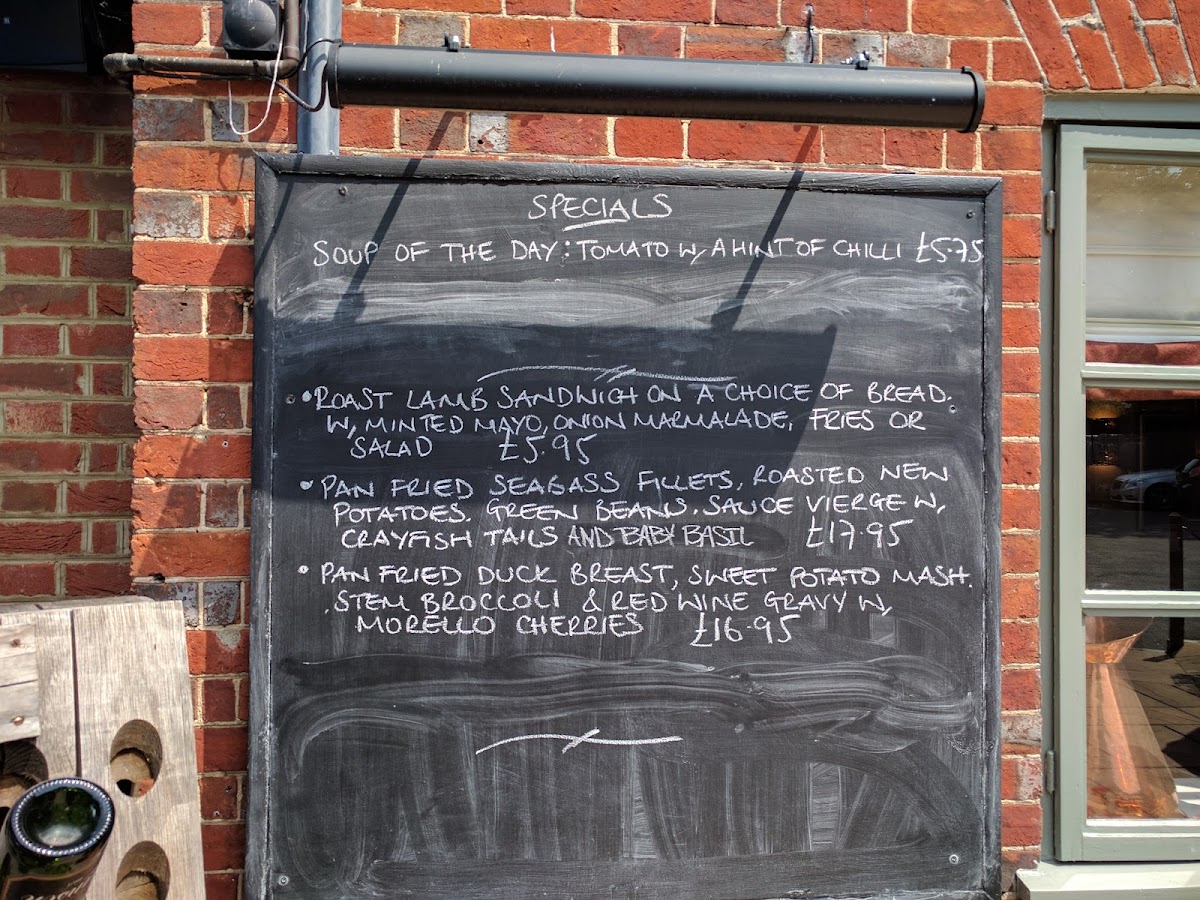 SPECIALS
SOUP OF THE DAY: TOMATO W, A HINT OF CHILLI £5.75
• ROAST LAMB SANDWICH ON A CHOICE OF BREAD.
W, MINTED MAYO, ONION MARMALADE, FRIES OR
SALAD £5.95
• PAN FRIED SEABASS FILLETS, ROASTED NEW
POTATOES. GREEN BEANS. SAUCE VIERGE W,
CRAYFISH TAILS AND BABY BASIL £17.95
• PAN FRIED DUCK BREAST, SWEET POTATO MASH.
STEM BROCCOLI & RED WINE GRAVY W,
MORELLO CHERRIES £16.95